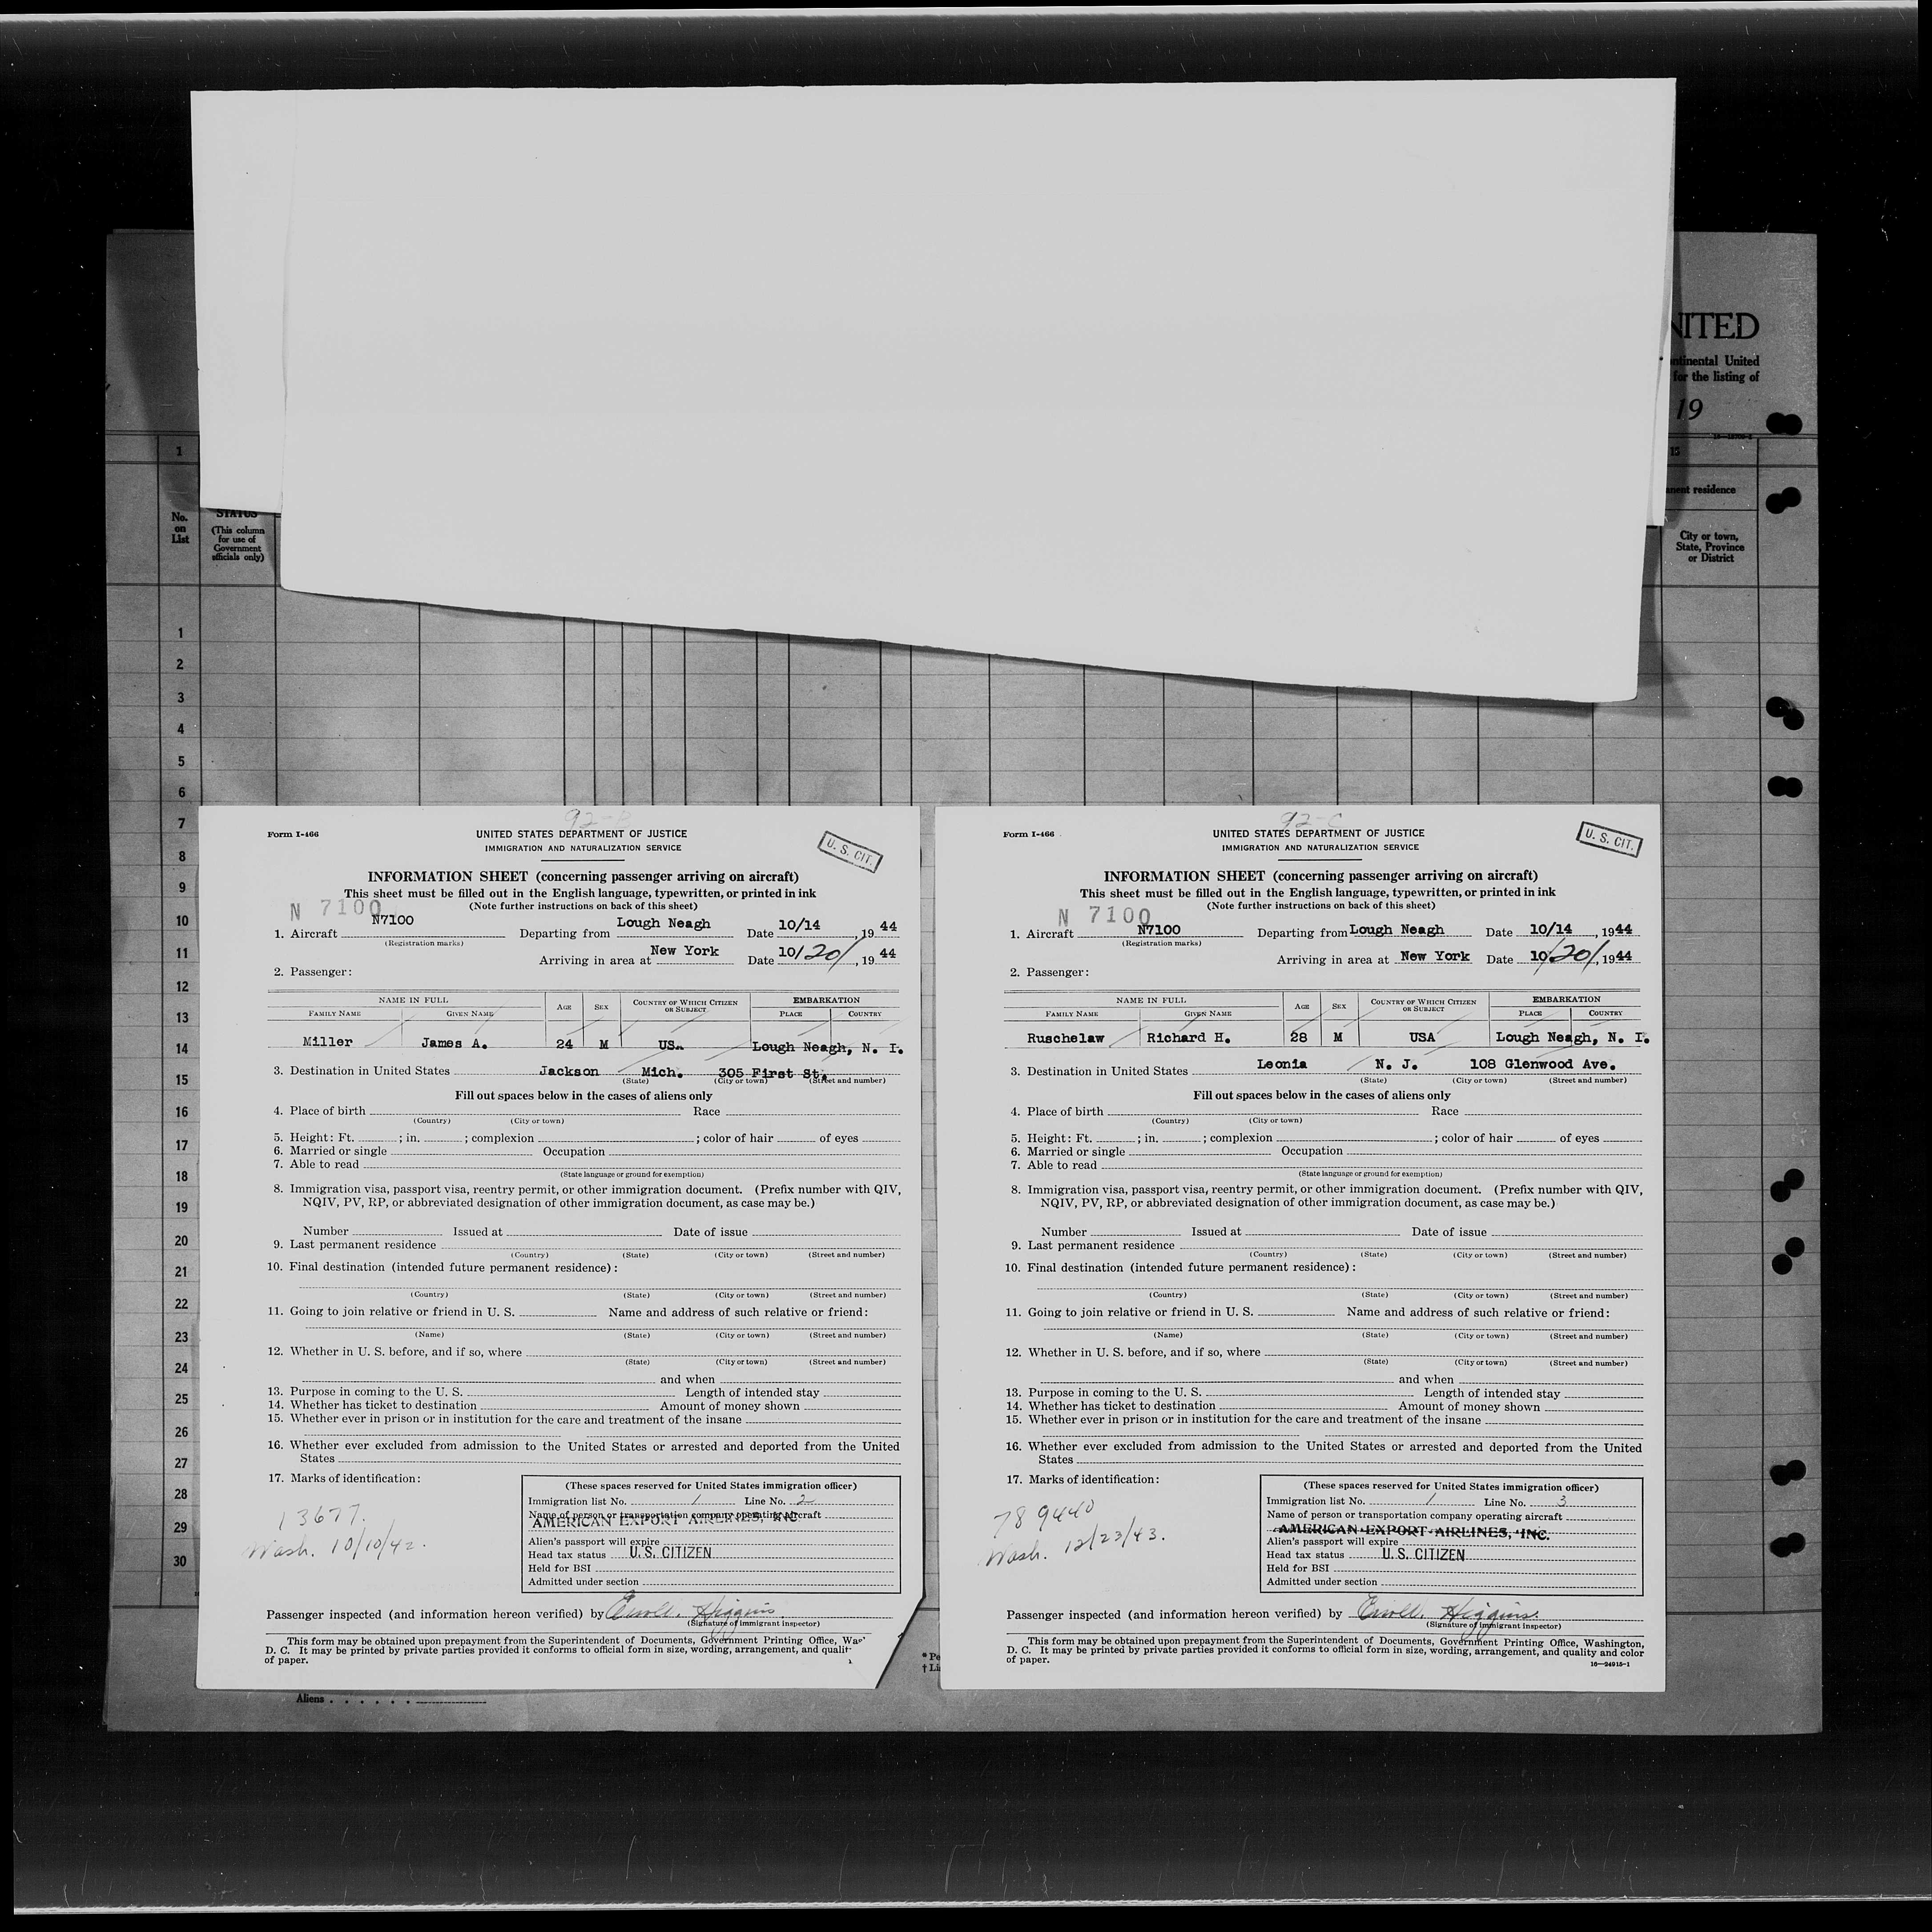 NITED
ntinental United
for the listing of
19
1
15
anent residence
No.
on
List
STATUS
(This column
for use of
Government
officials only)
City or town,
State, Province
or District
1
2
3
4
5
6
7
8
9
10
11
12
13
14
15
16
17
18
19
20
21
22
23
24
25
26
27
28
29
30
92-B
Form I-466
UNITED STATES DEPARTMENT OF JUSTICE
IMMIGRATION AND NATURALIZATION SERVICE
U. S. CIT.
INFORMATION SHEET (concerning passenger arriving on aircraft)
This sheet must be filled out in the English language, typewritten, or printed in ink
(Note further instructions on back of this sheet)
N 7100
1. Aircraft N7100 Departing from Lough Neagh Date 10/14, 19 44
(Registration marks)
Arriving in area at New York Date 10/20/, 19 44
2. Passenger:
NAME IN FULL AGE SEX COUNTRY OF WHICH CITIZEN OR SUBJECT EMBARKATION
FAMILY NAME GIVEN NAME PLACE COUNTRY
Miller James A. 24 M US. Lough Neagh, N. I.
3. Destination in United States Jackson Mich. 305 First St.
(State) (City or town) (Street and number)
Fill out spaces below in the cases of aliens only
4. Place of birth Race
(Country) (City or town)
5. Height: Ft. ; in. ; complexion ; color of hair of eyes
6. Married or single Occupation
7. Able to read
(State language or ground for exemption)
8. Immigration visa, passport visa, reentry permit, or other immigration document. (Prefix number with QIV,
NQIV, PV, RP, or abbreviated designation of other immigration document, as case may be.)
Number Issued at Date of issue
9. Last permanent residence
(Country) (State) (City or town) (Street and number)
10. Final destination (intended future permanent residence):
(Country) (State) (City or town) (Street and number)
11. Going to join relative or friend in U. S. Name and address of such relative or friend:
(Name) (State) (City or town) (Street and number)
12. Whether in U. S. before, and if so, where
(State) (City or town) (Street and number)
and when
13. Purpose in coming to the U. S. Length of intended stay
14. Whether has ticket to destination Amount of money shown
15. Whether ever in prison or in institution for the care and treatment of the insane
16. Whether ever excluded from admission to the United States or arrested and deported from the United
States
17. Marks of identification:
13677.
Wash. 10/10/42.
(These spaces reserved for United States immigration officer)
Immigration list No. 1 Line No. 2
Name of person or transportation company operating aircraft
AMERICAN EXPORT AIRLINES, INC.
Alien's passport will expire
Head tax status U. S. CITIZEN
Held for BSI
Admitted under section
Passenger inspected (and information hereon verified) by Higgins
(Signature of immigrant inspector)
This form may be obtained upon prepayment from the Superintendent of Documents, Government Printing Office, Was
D. C. It may be printed by private parties provided it conforms to official form in size, wording, arrangement, and qualit
of paper.
92-C
Form I-466
UNITED STATES DEPARTMENT OF JUSTICE
IMMIGRATION AND NATURALIZATION SERVICE
U. S. CIT.
INFORMATION SHEET (concerning passenger arriving on aircraft)
This sheet must be filled out in the English language, typewritten, or printed in ink
(Note further instructions on back of this sheet)
N 7100
1. Aircraft N7100 Departing from Lough Neagh Date 10/14, 1944
(Registration marks)
Arriving in area at New York Date 10/20/, 1944
2. Passenger:
NAME IN FULL AGE SEX COUNTRY OF WHICH CITIZEN OR SUBJECT EMBARKATION
FAMILY NAME GIVEN NAME PLACE COUNTRY
Ruschelaw Richard H. 28 M USA Lough Neagh, N. I.
3. Destination in United States Leonia N. J. 108 Glenwood Ave.
(State) (City or town) (Street and number)
Fill out spaces below in the cases of aliens only
4. Place of birth Race
(Country) (City or town)
5. Height: Ft. ; in. ; complexion ; color of hair of eyes
6. Married or single Occupation
7. Able to read
(State language or ground for exemption)
8. Immigration visa, passport visa, reentry permit, or other immigration document. (Prefix number with QIV,
NQIV, PV, RP, or abbreviated designation of other immigration document, as case may be.)
Number Issued at Date of issue
9. Last permanent residence
(Country) (State) (City or town) (Street and number)
10. Final destination (intended future permanent residence):
(Country) (State) (City or town) (Street and number)
11. Going to join relative or friend in U. S. Name and address of such relative or friend:
(Name) (State) (City or town) (Street and number)
12. Whether in U. S. before, and if so, where
(State) (City or town) (Street and number)
and when
13. Purpose in coming to the U. S. Length of intended stay
14. Whether has ticket to destination Amount of money shown
15. Whether ever in prison or in institution for the care and treatment of the insane
16. Whether ever excluded from admission to the United States or arrested and deported from the United
States
17. Marks of identification:
789440
Wash. 12/23/43.
(These spaces reserved for United States immigration officer)
Immigration list No. 1 Line No. 3
Name of person or transportation company operating aircraft
AMERICAN EXPORT AIRLINES, INC.
Alien's passport will expire
Head tax status U. S. CITIZEN
Held for BSI
Admitted under section
Passenger inspected (and information hereon verified) by Higgins.
(Signature of immigrant inspector)
This form may be obtained upon prepayment from the Superintendent of Documents, Government Printing Office, Washington,
D. C. It may be printed by private parties provided it conforms to official form in size, wording, arrangement, and quality and color
of paper.
16—24915-1
* Pe
† Li
Aliens